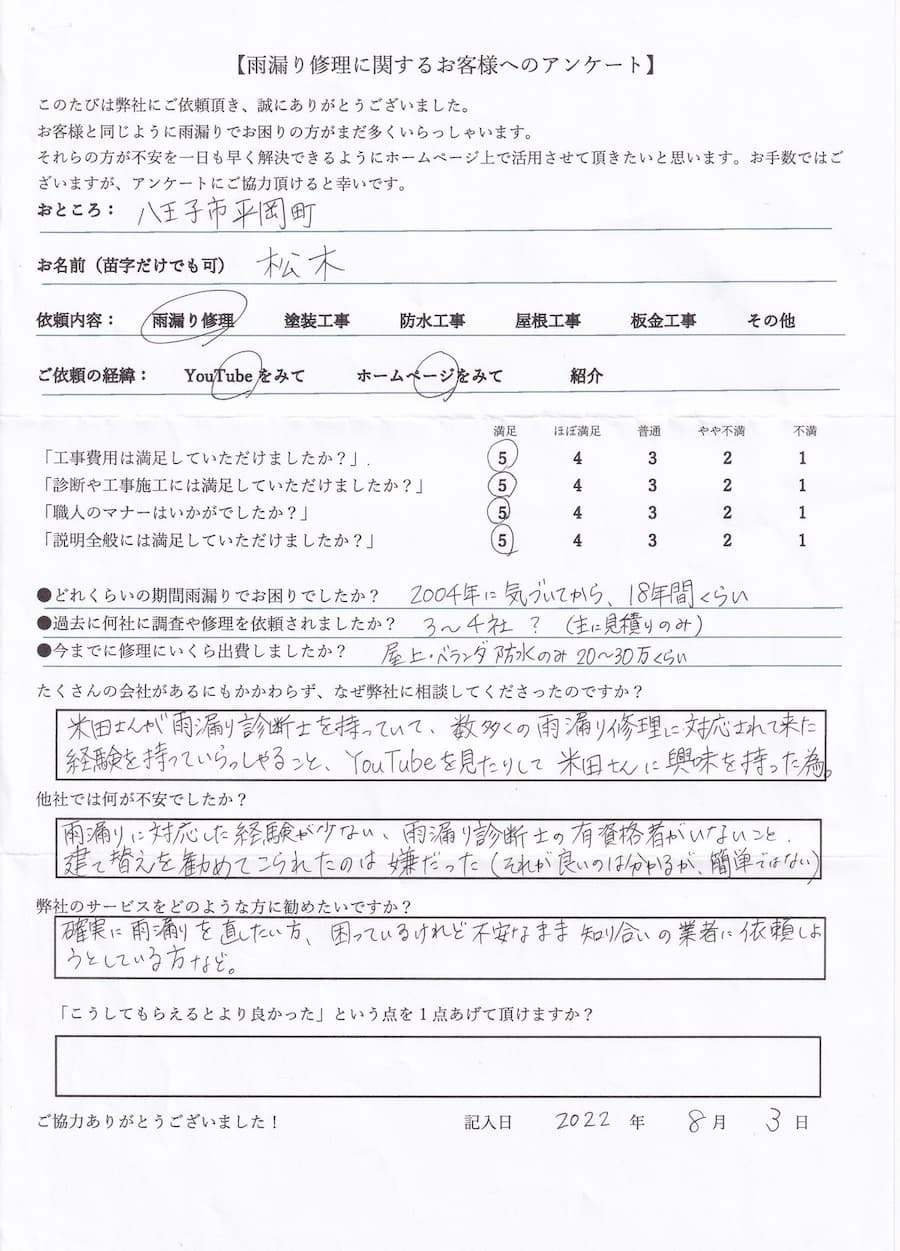 【雨漏り修理に関するお客様へのアンケート】
このたびは弊社にご依頼頂き、誠にありがとうございました。
お客様と同じように雨漏りでお困りの方がまだ多くいらっしゃいます。
それらの方が不安を一日も早く解決できるようにホームページ上で活用させて頂きたいと思います。お手数ではご
ざいますが、アンケートにご協力頂けると幸いです。
おところ： 八王子市平岡町
お名前（苗字だけでも可） 松木
依頼内容： 雨漏り修理 塗装工事 防水工事 屋根工事 板金工事 その他
ご依頼の経緯： YouTubeをみて ホームページをみて 紹介
満足 ほぼ満足 普通 やや不満 不満
「工事費用は満足していただけましたか？」. 5 4 3 2 1
「診断や工事施工には満足していただけましたか？」 5 4 3 2 1
「職人のマナーはいかがでしたか？」 5 4 3 2 1
「説明全般には満足していただけましたか？」 5 4 3 2 1
●どれくらいの期間雨漏りでお困りでしたか？ 2004年に気づいてから、18年間くらい
●過去に何社に調査や修理を依頼されましたか？ 3〜4社？（主に見積りのみ）
●今までに修理にいくら出費しましたか？ 屋上・ベランダ防水のみ20〜30万くらい
たくさんの会社があるにもかかわらず、なぜ弊社に相談してくださったのですか？
米田さんが雨漏り診断士を持っていて、数多くの雨漏り修理に対応されて来た
経験を持っていらっしゃること、YouTubeを見たりして米田さんに興味を持った為。
他社では何が不安でしたか？
雨漏りに対応した経験が少ない、雨漏り診断士の有資格者がいないこと.
建て替えを勧めてこられたのは嫌だった（それが良いのは分かるが、簡単ではない）
弊社のサービスをどのような方に勧めたいですか？
確実に雨漏りを直したい方、困っているけれど不安なまま知り合いの業者に依頼しよ
うとしている方など。
「こうしてもらえるとより良かった」という点を１点あげて頂けますか？
ご協力ありがとうございました！ 記入日 2022 年 8 月 3 日